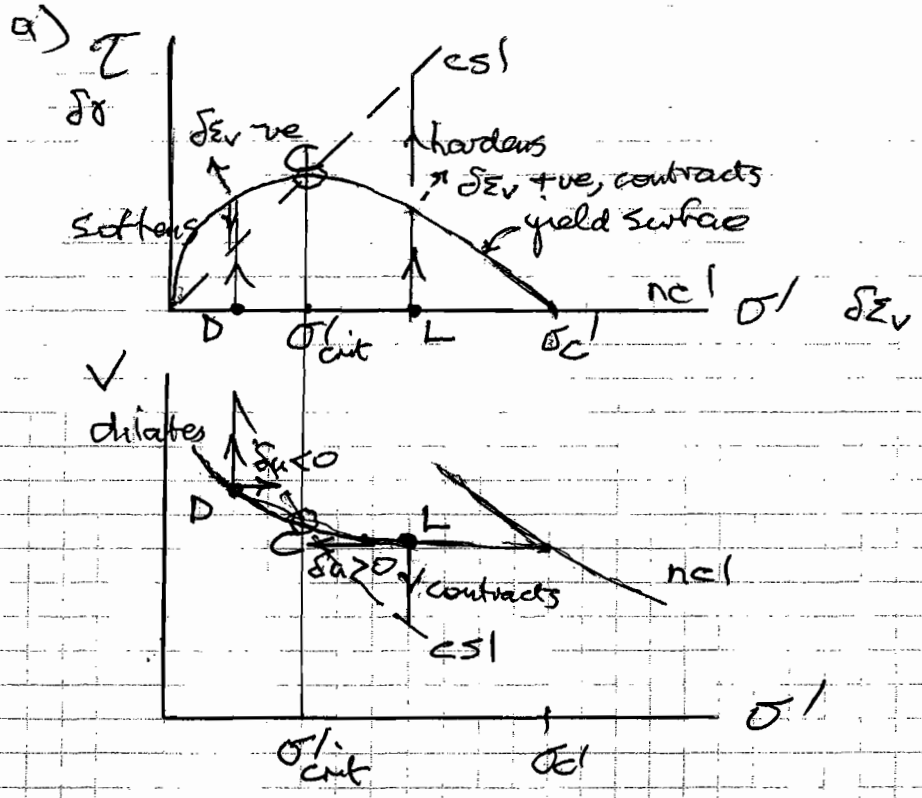 a)
τ
δγ
csl
δεv -ve
C
hardens
δεv +ve, contracts
softens
yield surface
ncl
D
σ'crit
L
σc'
σ'
δεv
V
dilates
δu<0
D
C
L
δu>0
contracts
ncl
csl
σ'
σ'crit
σc'